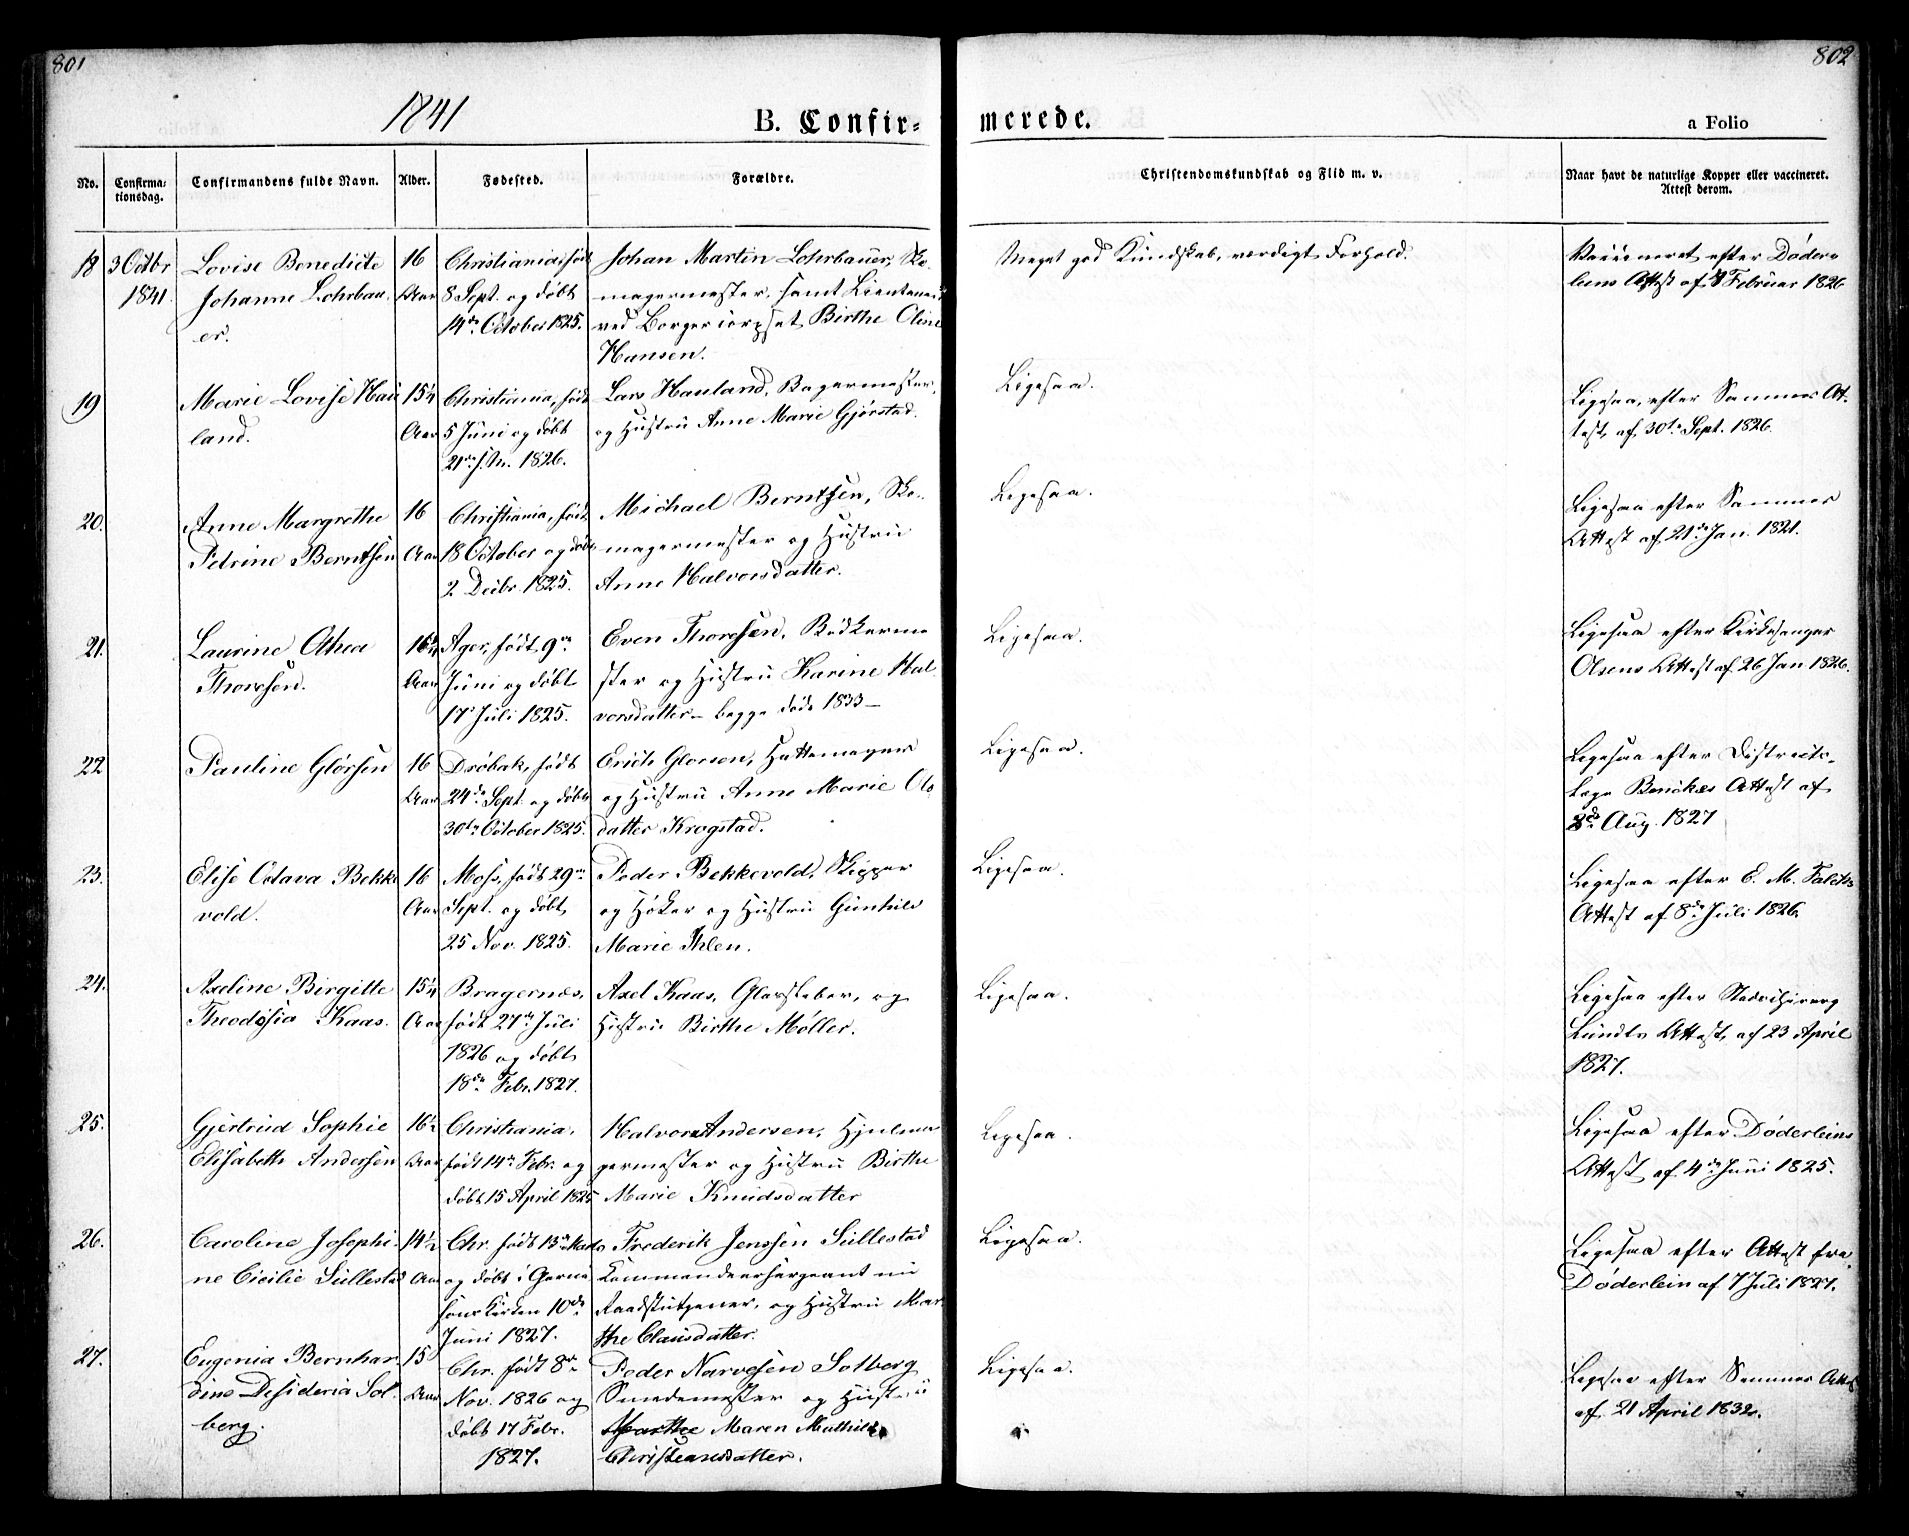 801
802
1841
B. Confir-
merede.
a Folio
No.
Confirma-
tionsdag.
Confirmandens fulde Navn.
Alder.
Fødested.
Forældre.
Christendomskundskab og Flid m. v.
Naar havt de naturlige Kopper eller vaccineret.
Attest derom.
18
3 Octbr
1841
Lovise Benedicte
Johanne Lohrbau-
er.
16
Aar
Christiania, født
8 Sept. og døbt
14de October 1825.
Johan Martin Lohrbauer, Sko-
magermester, samt Lieutenant
ved Borgercorpset Birthe Oline
Hansen.
Meget god Kundskab, værdigt Forhold.
Vaccineret efter Døder-
leins Attest af Februar 1826
19
Marie Lovise Hau
land.
15 1/4
Aar
Christiania, født
5 Juni og døbt
21de s. M. 1826.
Lars Hauland, Bagermester,
og Hustru Anne Marie Gjørstad.
Ligesaa.
Ligesaa, efter Sammes At-
test, af 30te Sept. 1826.
20.
Anne Margrethe
Petrine Berntsen
16
Aar
Christiania, født
18 October og døbt
2 Decbr. 1825.
Michael Berntsen, Sko-
magermester og Hustru
Anne Halvorsdatter.
Ligesaa.
Ligesaa efter Sammes
Attest af 21de Jan. 1821.
21.
Laurine Athea
Thoresen.
16 1/4
Aar
Ager, født 9de
Juni og døbt
17de Juli 1825.
Even Thoresen, Bødkerme-
ster og Hustru Karine Hal-
vorsdatter – begge døde 1833 –
Ligesaa.
Ligesaa efter Kirkesanger
Olsens Attest af 26 Jan 1826.
22
Pauline Glørsen
16
Aar
Drøbak, født
24de Sept. og døbt
30te October 1825.
Erich Glørsen, Hattemager
og Hustru Anne Marie Ols-
datter Krogstad.
Ligesaa.
Ligesaa efter Districts-
læge Attest af
Aug. 1827
23.
Elise Octava Bekke
vold.
16
Aar
Moss, født 29de
Sept. og døbt
25 Nov. 1825.
Peder Bekkevold, Skipper
og Høker og Hustru Gunhild
Marie Ihlen.
Ligesaa.
Ligesaa efter C. M. Falchs
Attest af 8de Juli 1826.
24.
Axeline Birgitte
Theodosia Kaas.
15 1/4
Aar
Bragernæs,
født 27de Juli
1826 og døbt
18de Febr. 1827.
Axel Kaas, Glasskaber, og
Hustru Birthe Møller.
Ligesaa.
Ligesaa efter Stadschirurg
Lundts Attest, af 23 April
1827.
25.
Gjertrud Sophie
Elisabeth Andersen
16 1/2
Aar
Christiania,
født 14de Febr. og
døbt 15 April 1825
Halvor Andersen, Hjulma-
germester og Hustru Birthe
Marie Knudsdatter
Ligesaa.
Ligesaa efter Døderleins
Attest af 4de Juni 1825.
26.
Caroline Josephi-
ne Cicilie Sullestad
14 1/2
Aar
Chr. født 13de Marts
og døbt i Garni-
sonskirken 10de
Juni 1827.
Frederik Jenssen Sullestad
Kommandeersergeant nu
Raadstutjener, og Hustru Mar-
the Clausdatter.
Ligesaa.
Ligesaa efter Attest fra
Døderlein af 7 Juli 1827.
27.
Eugenia Bernhar-
dine Desideria Sol-
berg.
15
Aar
Chr. født 8de
Nov. 1826 og
døbt 17 Febr.
1827.
Peder Narvesen Solberg
Smedemester og Hustru
Marthe Maren Mathilde
Christiansdatter.
Ligesaa.
Ligesaa efter Sammes Attest
af 21 April 1832.